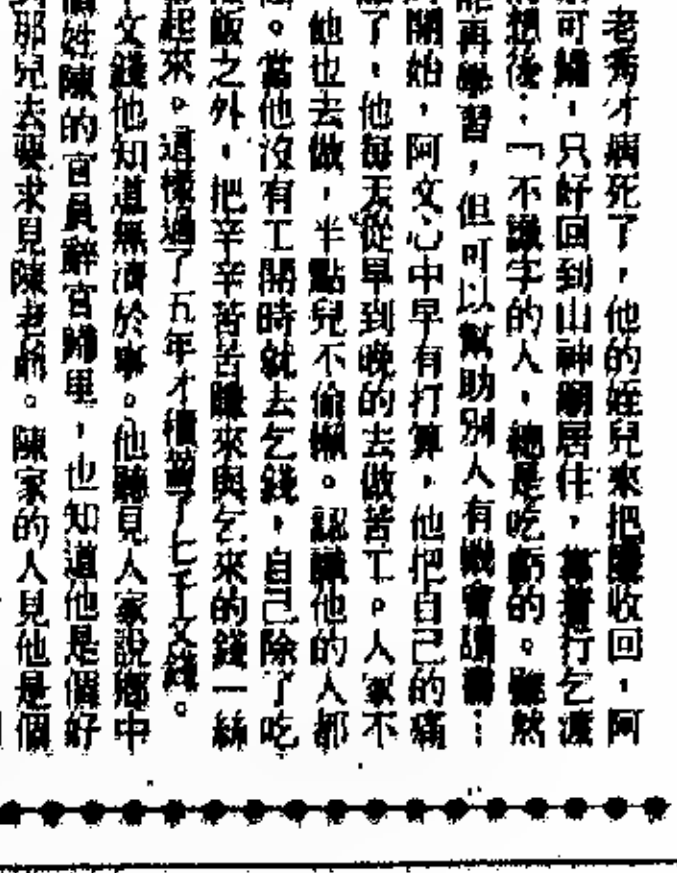 老秀才病死了，他的姪兒來把　收回，阿
可歸，只好回到山神廟居住，靠着行乞渡
想後：「不識字的人，總是吃虧的。雖然
能再學習，但可以幫助別人有機會讀書…
開始，阿文心中早有打算，他把自己的痛
了，他每天從早到晚的去做苦工。人家不
他也去做，半點兒不偷懶。認識他的人都
。當他沒有工開時就去乞錢，自己除了吃
飯之外，把辛辛苦苦賺來與乞來的錢一絲
起來。這樣過了五年才積蓄了七千文錢。
文錢他知道無濟於事。他聽見人家說鄉中
個姓陳的官員辭官歸里，也知道他是個好
那兒去要求見陳老爺。陳家的人見他是個